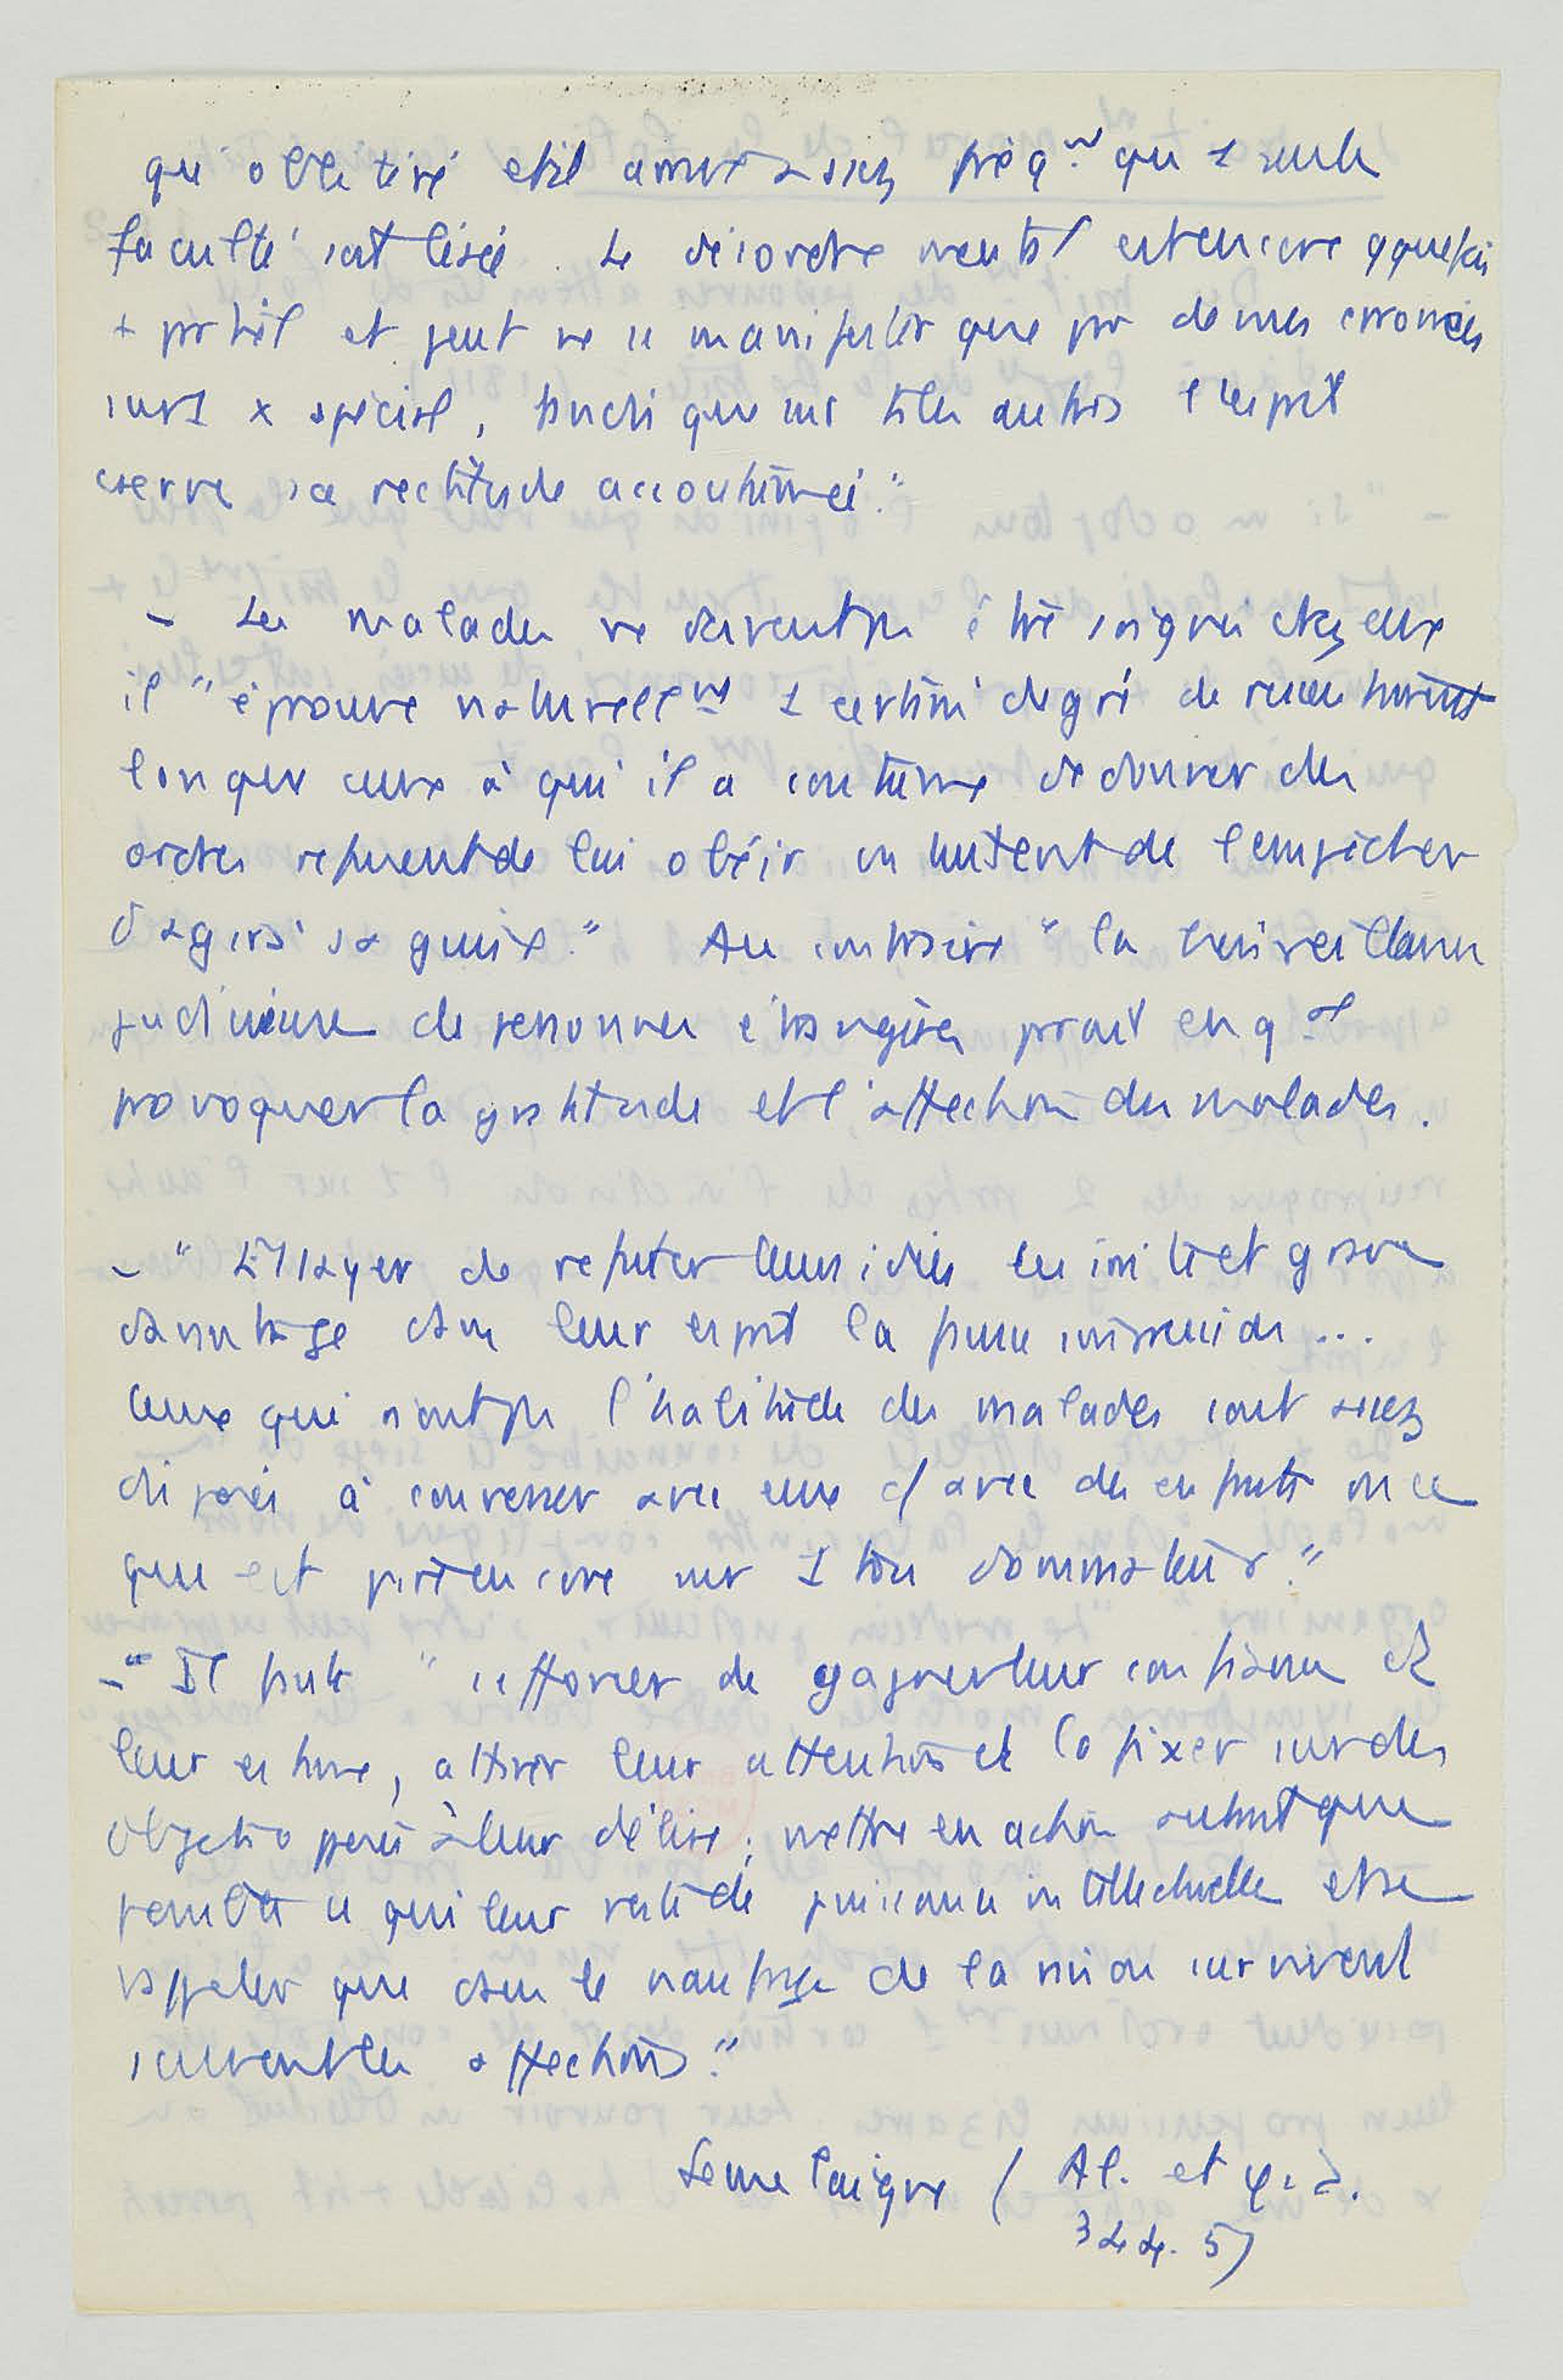 qu'oblitéré et il arrive assez fréqt que 1 seule
faculté soit lésée. Le désordre mental est encore qquefois
+ partiel et peut ne se manifester que par des vues erronées
sur 1 x spécial, tandis que sur tous les autres l'esprit
cserve sa rectitude accoutumée."
- Les malades ne doivent pas être soignés chez eux
il "éprouve naturellemt 1 certain degré de ressentiment
lorsque ceux à qui il a coutume de donner des
ordres refusent de lui obéir ou tentent de l'empêcher
d'agir à sa guise." Au contraire "la bienveillance
judicieuse de personnes étrangères prait en gal
provoquer la gratitude et l'affection des malades.
- "Essayer de réfuter leurs idées les irrite et grave
davantage dans leur esprit la fausse impression...
Ceux qui n'ont pas l'habitude des malades sont assez
disposés à converser avec eux c/ avec des enfants ou ce
qui est pire encore sur 1 ton dominateur."
-" Il faut " s'efforcer de gagner leur confiance et
leur estime, attirer leur attention et la fixer sur des
objets opposés à leur délire; mettre en action autant que
possible ce qui leur reste de puissance intellectuelle et se
rappeler que dans le naufrage de la raison survivent
souvent les affections."
Semelaigne ( Al. et φ.
344. 5)